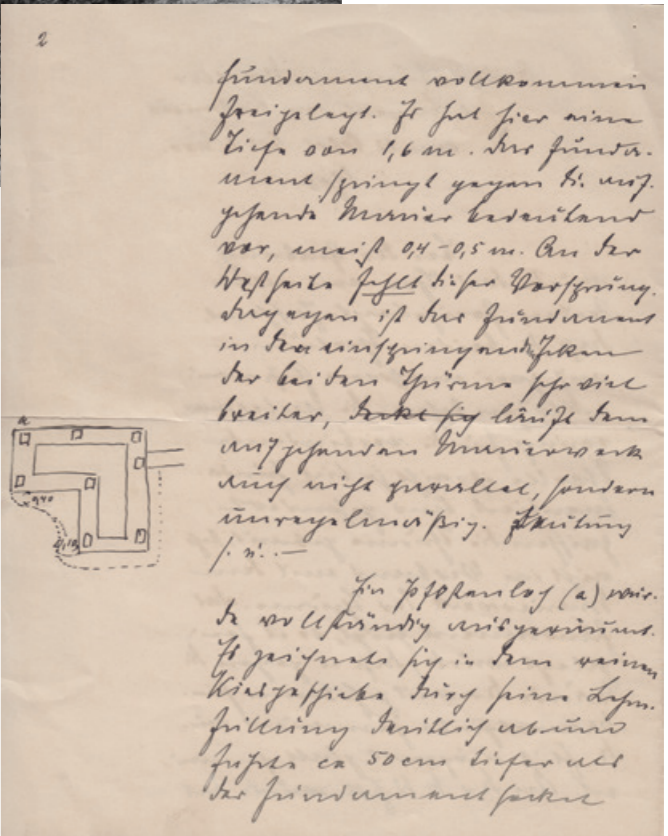 2
fundament vollkommen
freigelegt. Es hat hier eine
Tiefe von 1,6 m. Das Funda-
ment springt gegen die auf-
gehende Mauer bedeutend
vor, meist 0,4-0,5 m. An der
Westseite fehlt dieser Vorsprung.
dagegen ist das Fundament
in den einspringenden Ecken
der beiden Thürme sehr viel
breiter, deckt sich läuft dem
aufgehenden Mauerwerk
auch nicht parallel, sondern
unregelmäßig. Deutung
s. u. —
Ein Pfostenloch (a) wur-
de vollständig ausgeräumt.
Es zeichnete sich in dem reinen
Kiesgeschiebe durch seine Lehm-
füllung deutlich ab und
führte ca 50 cm tiefer als
der Fundamentsockel
a
0,40